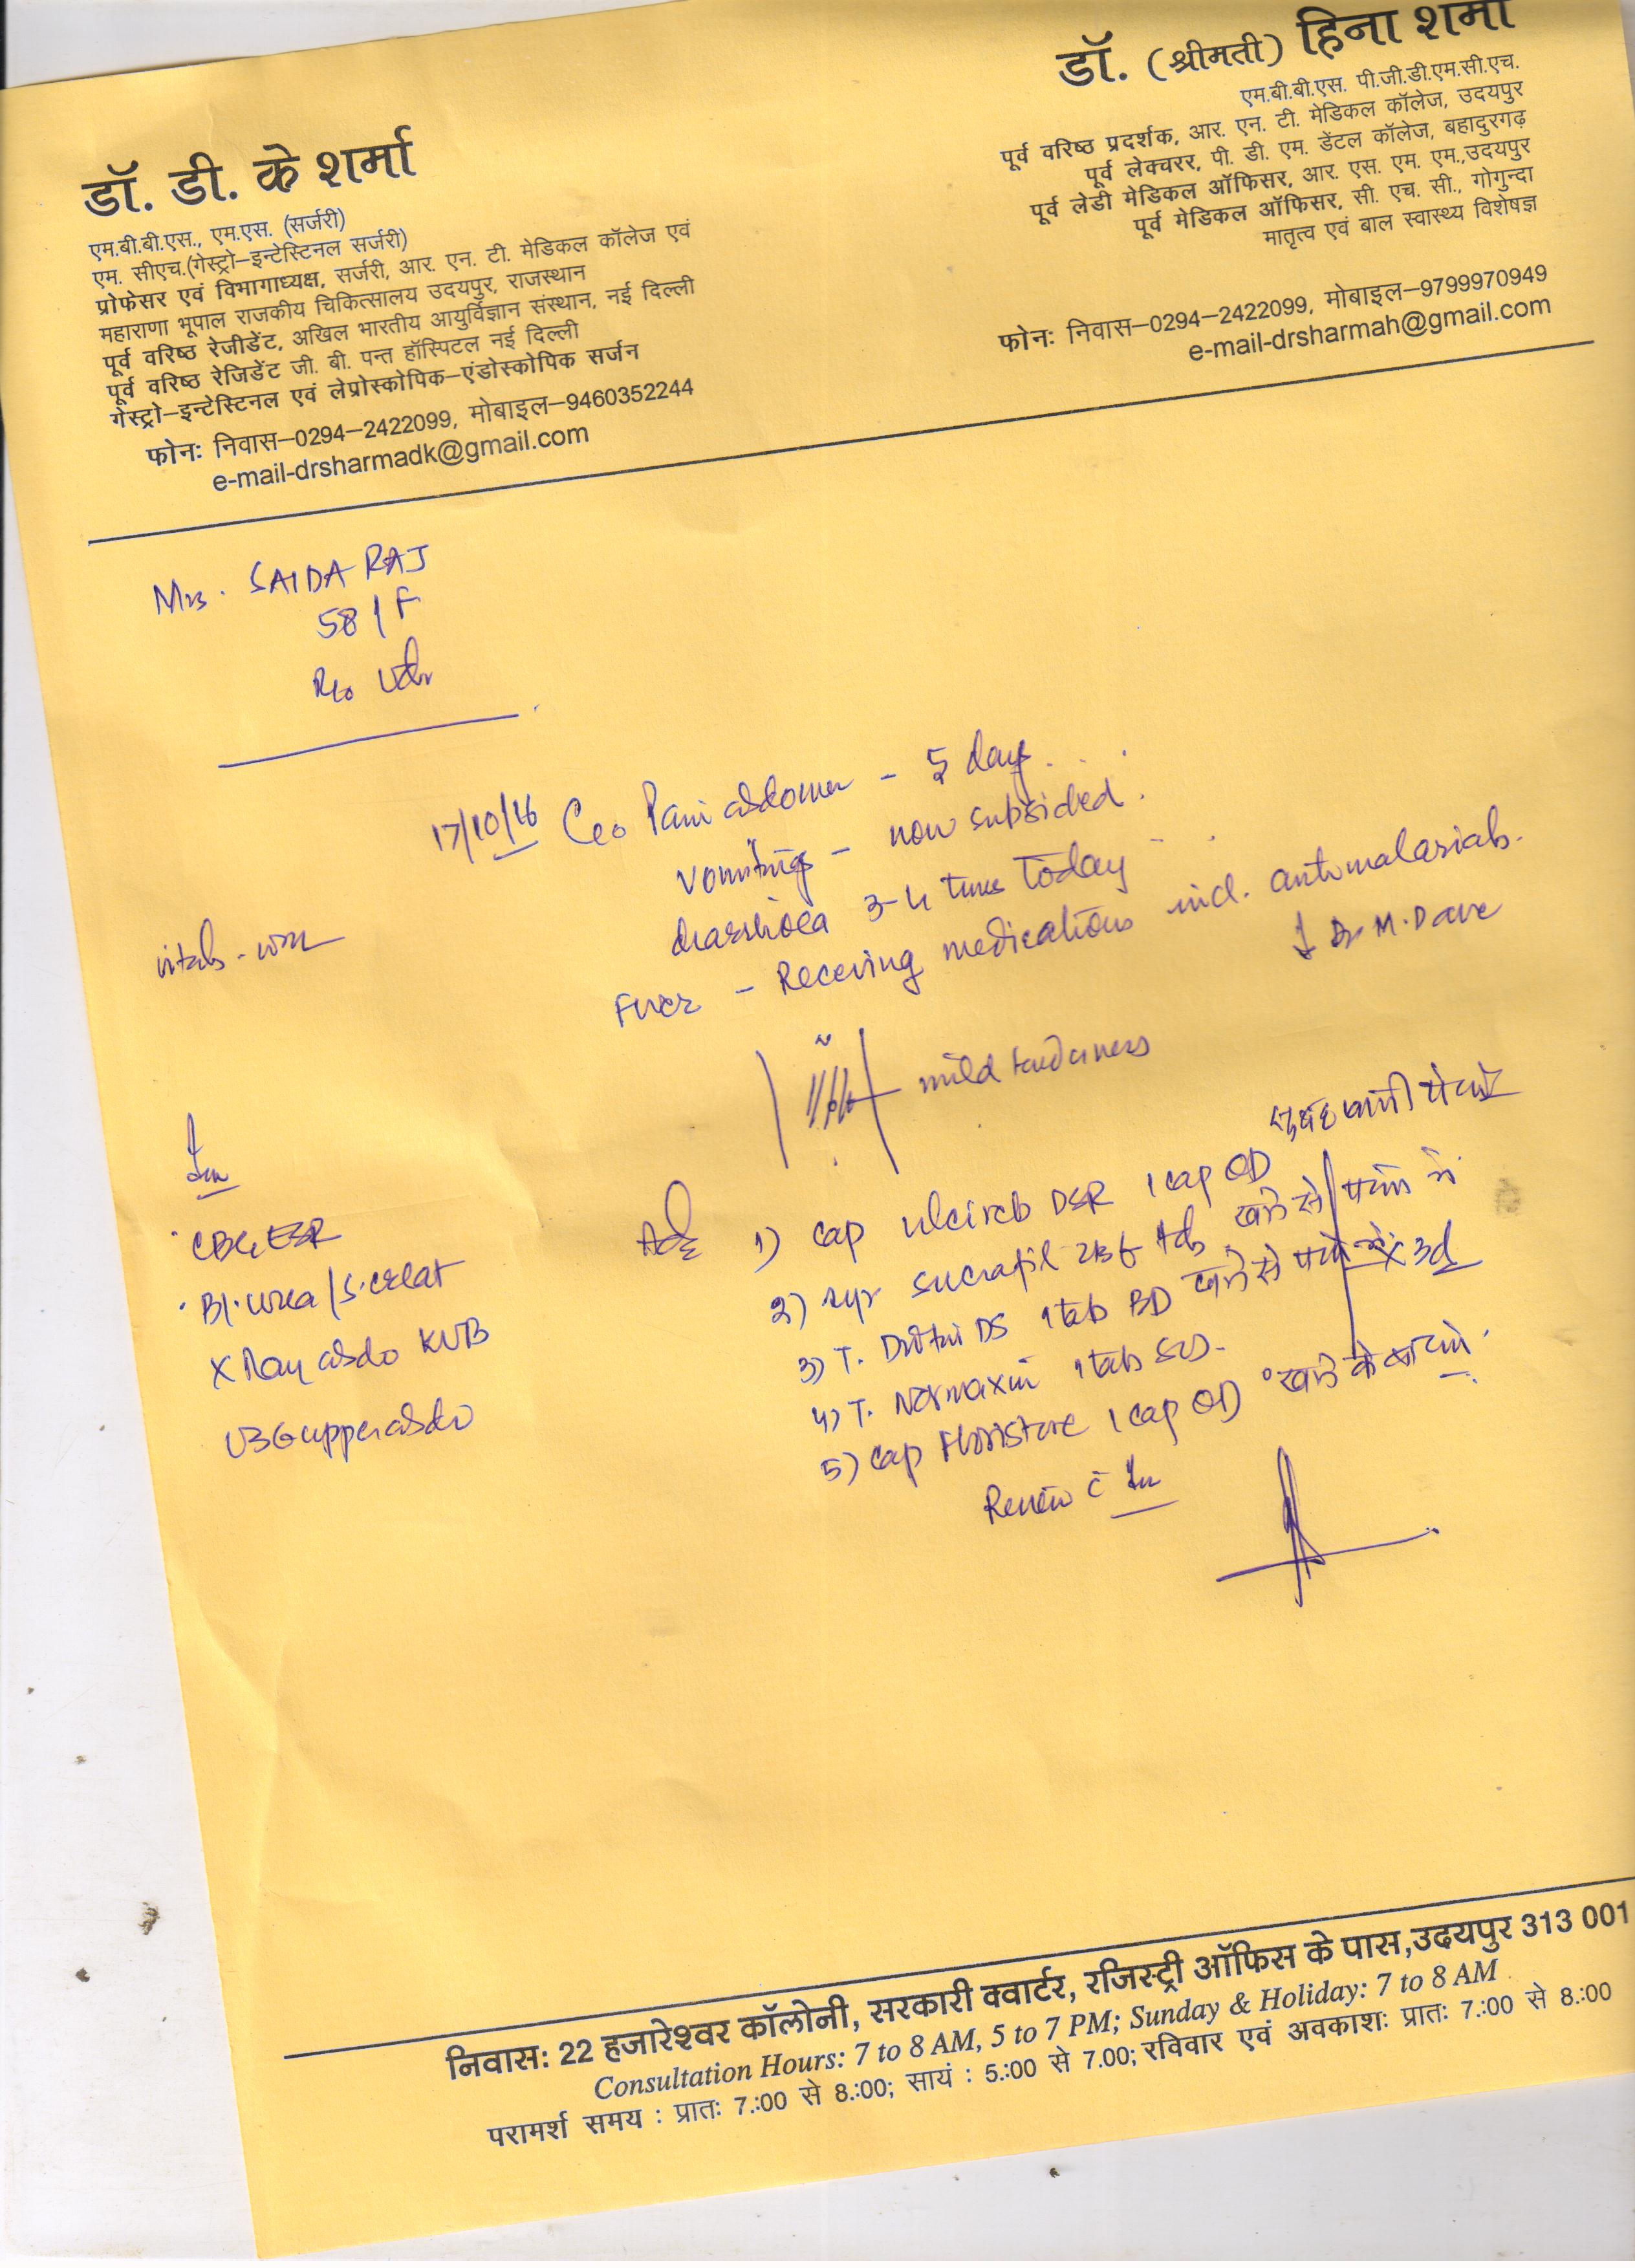 डॉ. डी. के शर्मा
एम.बी.बी.एस., एम.एस. (सर्जरी)
एम. सीएच.(गेस्ट्रो–इन्टेस्टिनल सर्जरी)
प्रोफेसर एवं विभागाध्यक्ष, सर्जरी, आर. एन. टी. मेडिकल कॉलेज एवं
महाराणा भूपाल राजकीय चिकित्सालय उदयपुर, राजस्थान
पूर्व वरिष्ठ रेजीडेंट, अखिल भारतीय आयुर्विज्ञान संस्थान, नई दिल्ली
पूर्व वरिष्ठ रेजिडेंट जी. बी. पन्त हॉस्पिटल नई दिल्ली
गेस्ट्रो–इन्टेस्टिनल एवं लेप्रोस्कोपिक–एंडोस्कोपिक सर्जन
फोनः निवास–0294–2422099, मोबाइल–9460352244
e-mail-drsharmadk@gmail.com
डॉ. (श्रीमती) हिना शर्मा
एम.बी.बी.एस. पी.जी.डी.एम.सी.एच.
पूर्व वरिष्ठ प्रदर्शक, आर. एन. टी. मेडिकल कॉलेज, उदयपुर
पूर्व लेक्चरर, पी. डी. एम. डेंटल कॉलेज, बहादुरगढ़
पूर्व लेडी मेडिकल ऑफिसर, आर. एस. एम. एम.,उदयपुर
पूर्व मेडिकल ऑफिसर, सी. एच. सी., गोगुन्दा
मातृत्व एवं बाल स्वास्थ्य विशेषज्ञ
फोनः निवास–0294–2422099, मोबाइल–9799970949
e-mail-drsharmah@gmail.com
Mrs. SAIDA RAJ
58/F
R/o Udr
17/10/16 C/o Pain abdomen - 5 days
vomitings - now subsided.
diarrhoea 3-4 times today
Fever - Receiving medications incl. antimalarials.
Dr M. Dave
vitals - wnl
mild tenderness
Inv
CBC, ESR
Bl. urea / S. creat
X Ray abdo KUB
USG upper abdo
Adv
1) Cap DSR 1 cap OD सुबह खाली पेट
2) Syr Sucrafil खाने से पहले
3) T. DS 1 tab BD खाने से पहले x 3d
4) T. Normaxin 1 tab SOS.
5) Cap Floristore 1 cap OD खाने के बाद
Review c̄ Inv
निवासः 22 हजारेश्वर कॉलोनी, सरकारी क्वार्टर, रजिस्ट्री ऑफिस के पास,उदयपुर 313 001
Consultation Hours: 7 to 8 AM, 5 to 7 PM; Sunday & Holiday: 7 to 8 AM
परामर्श समय : प्रातः 7.:00 से 8.:00; सायं : 5.:00 से 7.00; रविवार एवं अवकाशः प्रातः 7.:00 से 8.:00